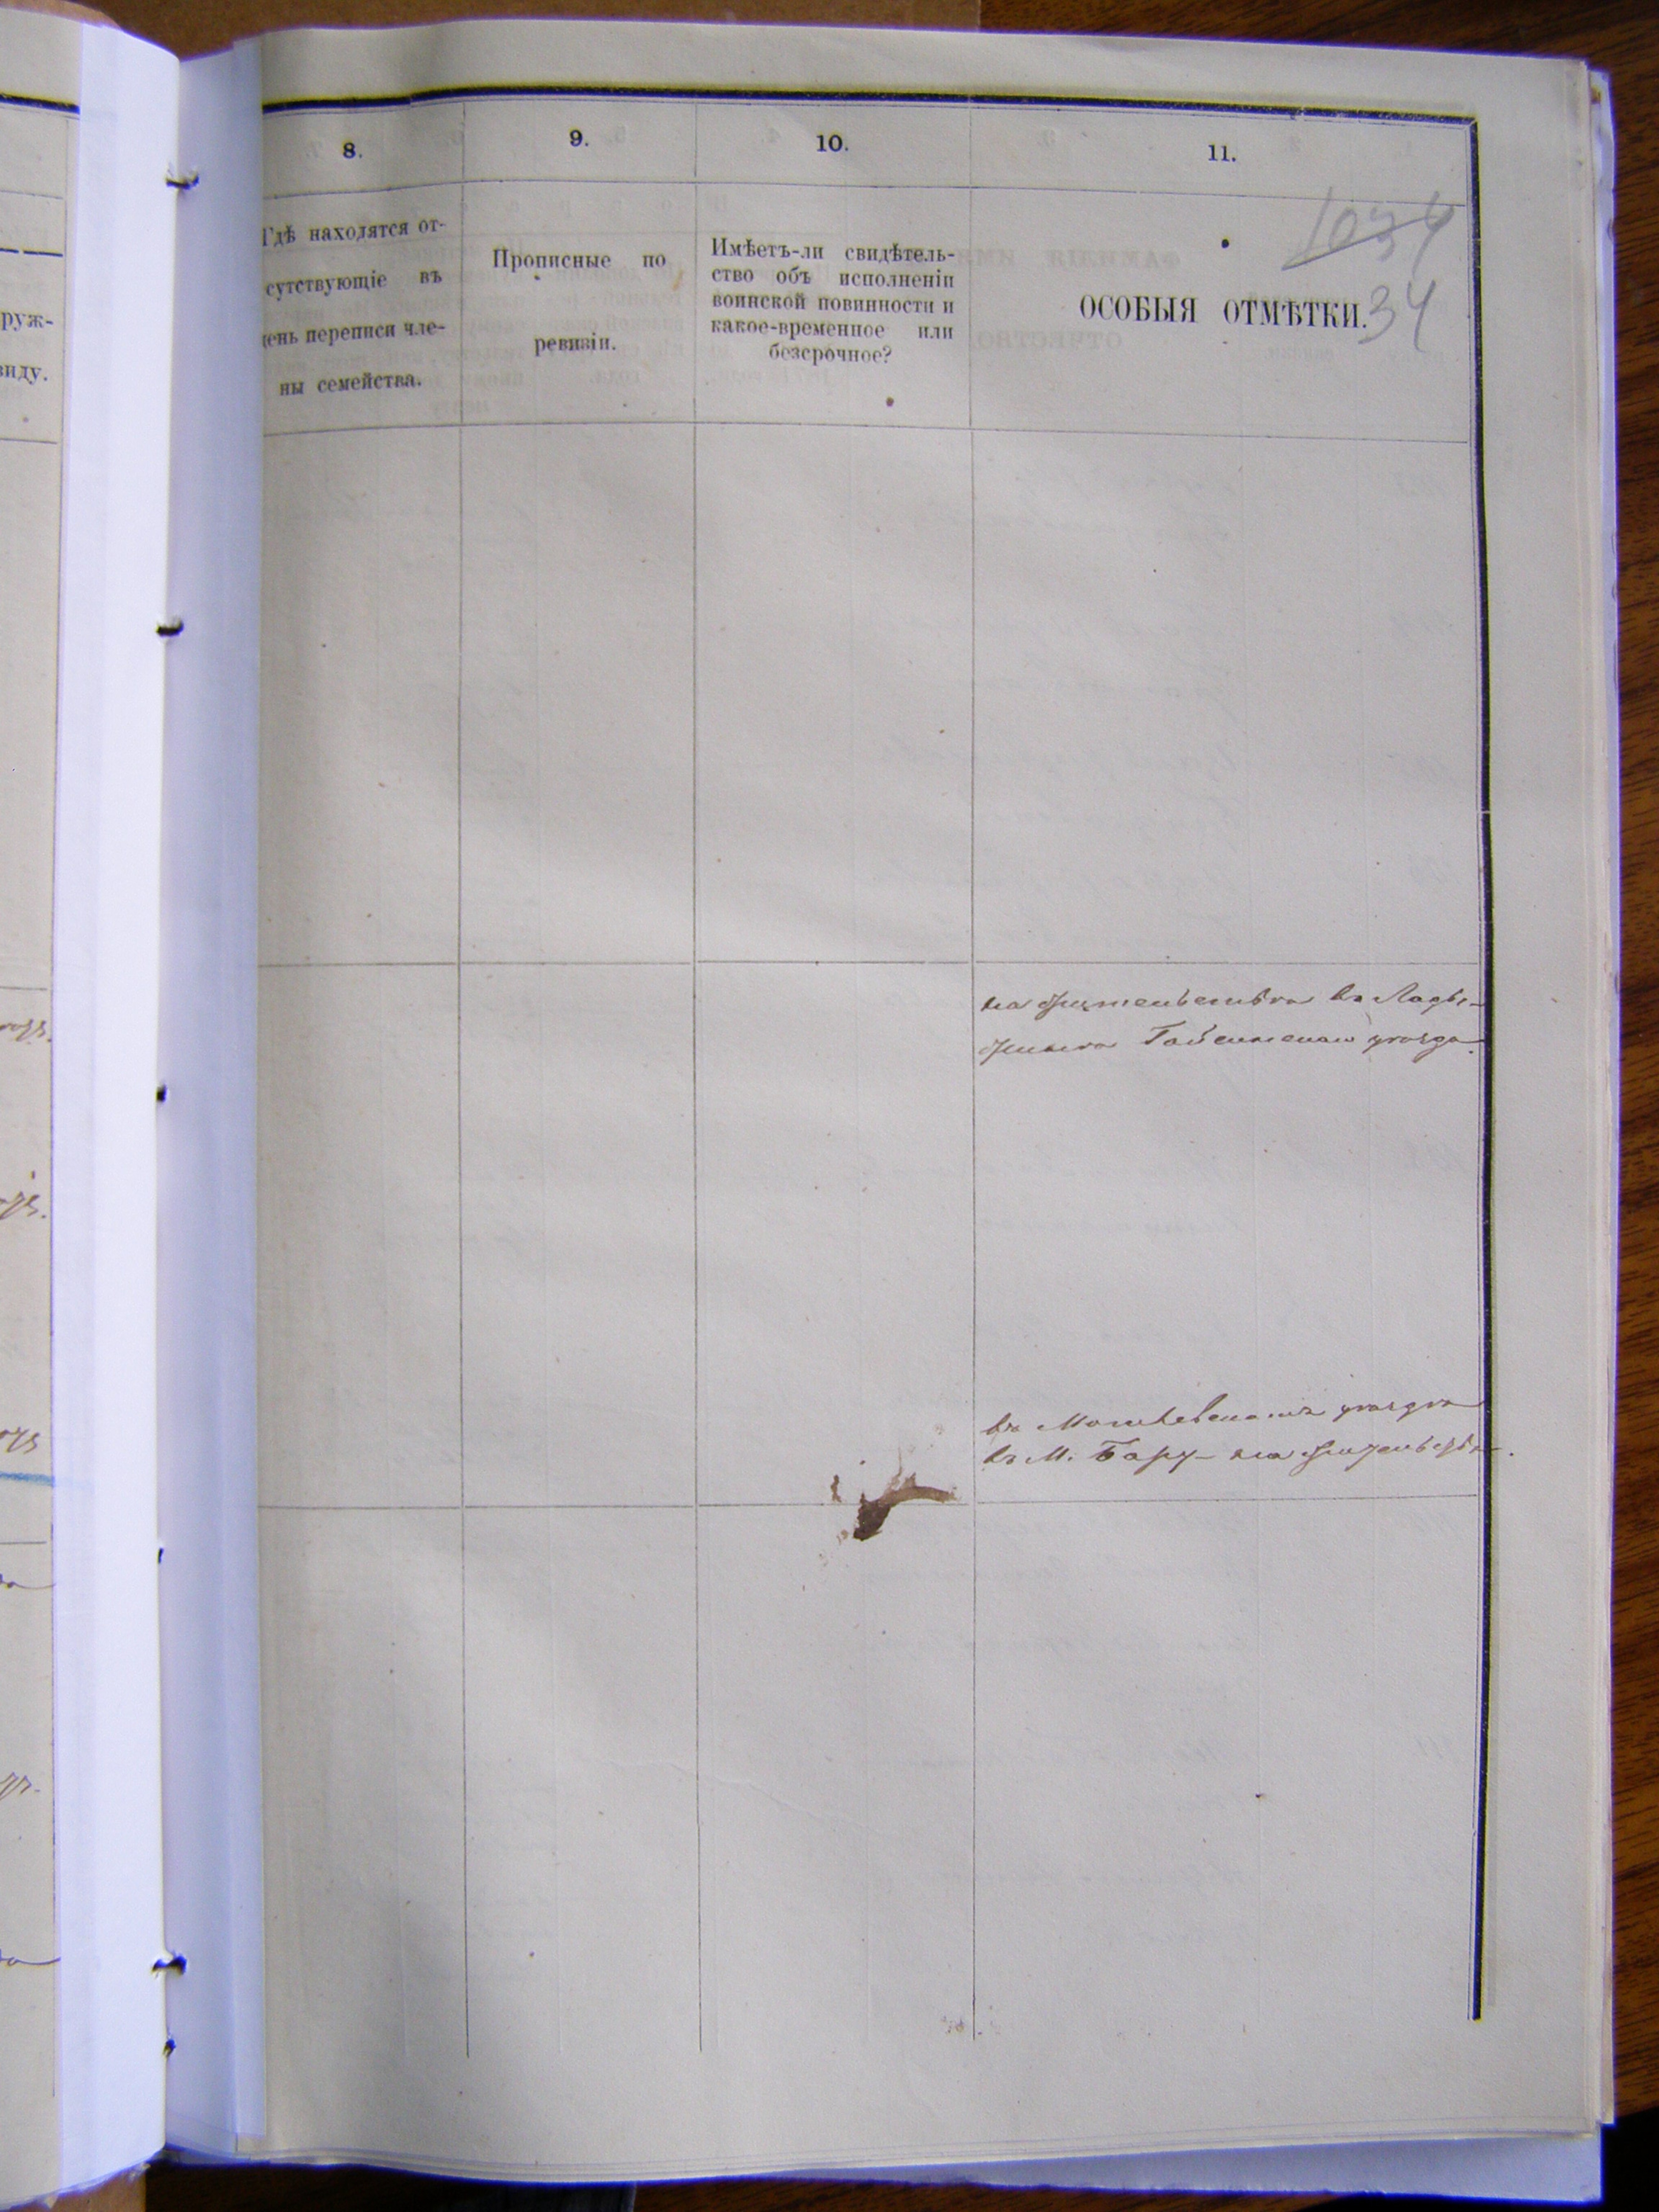 8.
9.
10.
11.
1034
34
Гдѣ находятся от-
сутствующіе въ
день переписи чле-
ны семейства.
Прописные по
ревизіи.
Имѣетъ-ли свидѣтель-
ство объ исполненіи
воинской повинности и
какое-временное или
безсрочное?
ОСОБЫЯ ОТМѢТКИ.
руж-
виду.
на жительства въ Лады-
жинѣ Гайсинскаго уѣзда.
въ Могилевскомъ уѣздѣ
въ М. Бару - на жительствѣ.